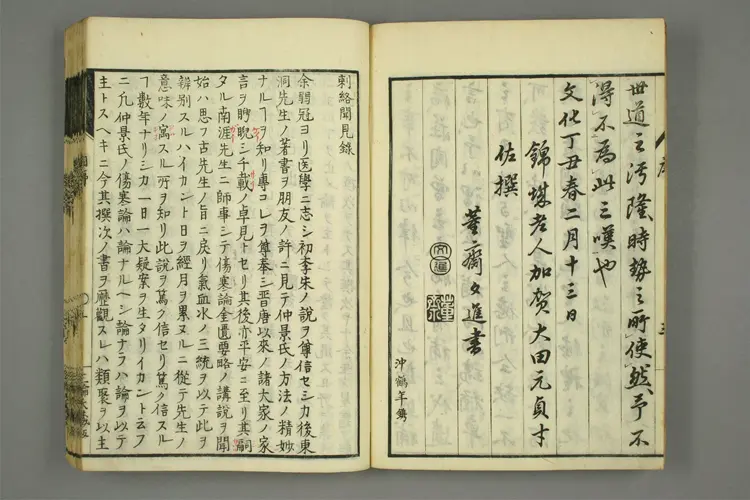 世道之污隆時勢之所使然乎不
得不為此三嘆也
文化丁丑春二月十三日
錦城老人加賀大田元貞才
佐撰
董齋文進書
沖鶴年鐫
刺絡聞見錄
余弱冠ヨリ医学ニ志シ初李朱ノ説ヲ尊信セシカ後東
洞先生ノ著書ヲ朋友ノ許ニ見テ仲景氏ノ方法ノ精妙
ナルヿヲ知リ専コレヲ尊奉シ晋唐以来ノ諸大家ノ家
言ヲ睥睨シ千載ノ卓見トセリ其後亦平安ニ至リ其嗣
タル南涯先生ニ師事シテ傷寒論金匱要略ノ講説ヲ聞
始ハ思フ古先生ノ旨ニ戻リ氣血水ノ三統ヲ以テ此ヲ
辨別スルハイカント日ヲ経月ヲ累ヌルニ從テ先生ノ
意味ノ寓スル所ヲ知リ此説ヲ篤ク信セリ篤ク信スル
ヿ数年ナリシカ一日一大疑案ヲ生タリイカント云フ
ニ凡仲景氏ノ傷寒論ハ論ナルヘシ論ナラハ論ヲ以テ
主トスヘキニ今其撰次ノ書ヲ歴觀スレハ類聚ヲ以主